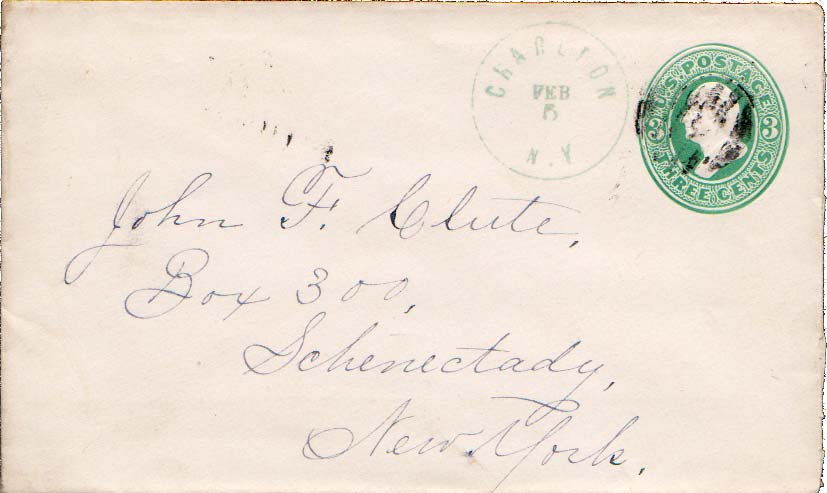 CHARLTON
FEB
5
N.Y
U.S. POSTAGE
3 3
THREE CENTS
John F. Clute,
Box 300,
Schenectady,
New York.